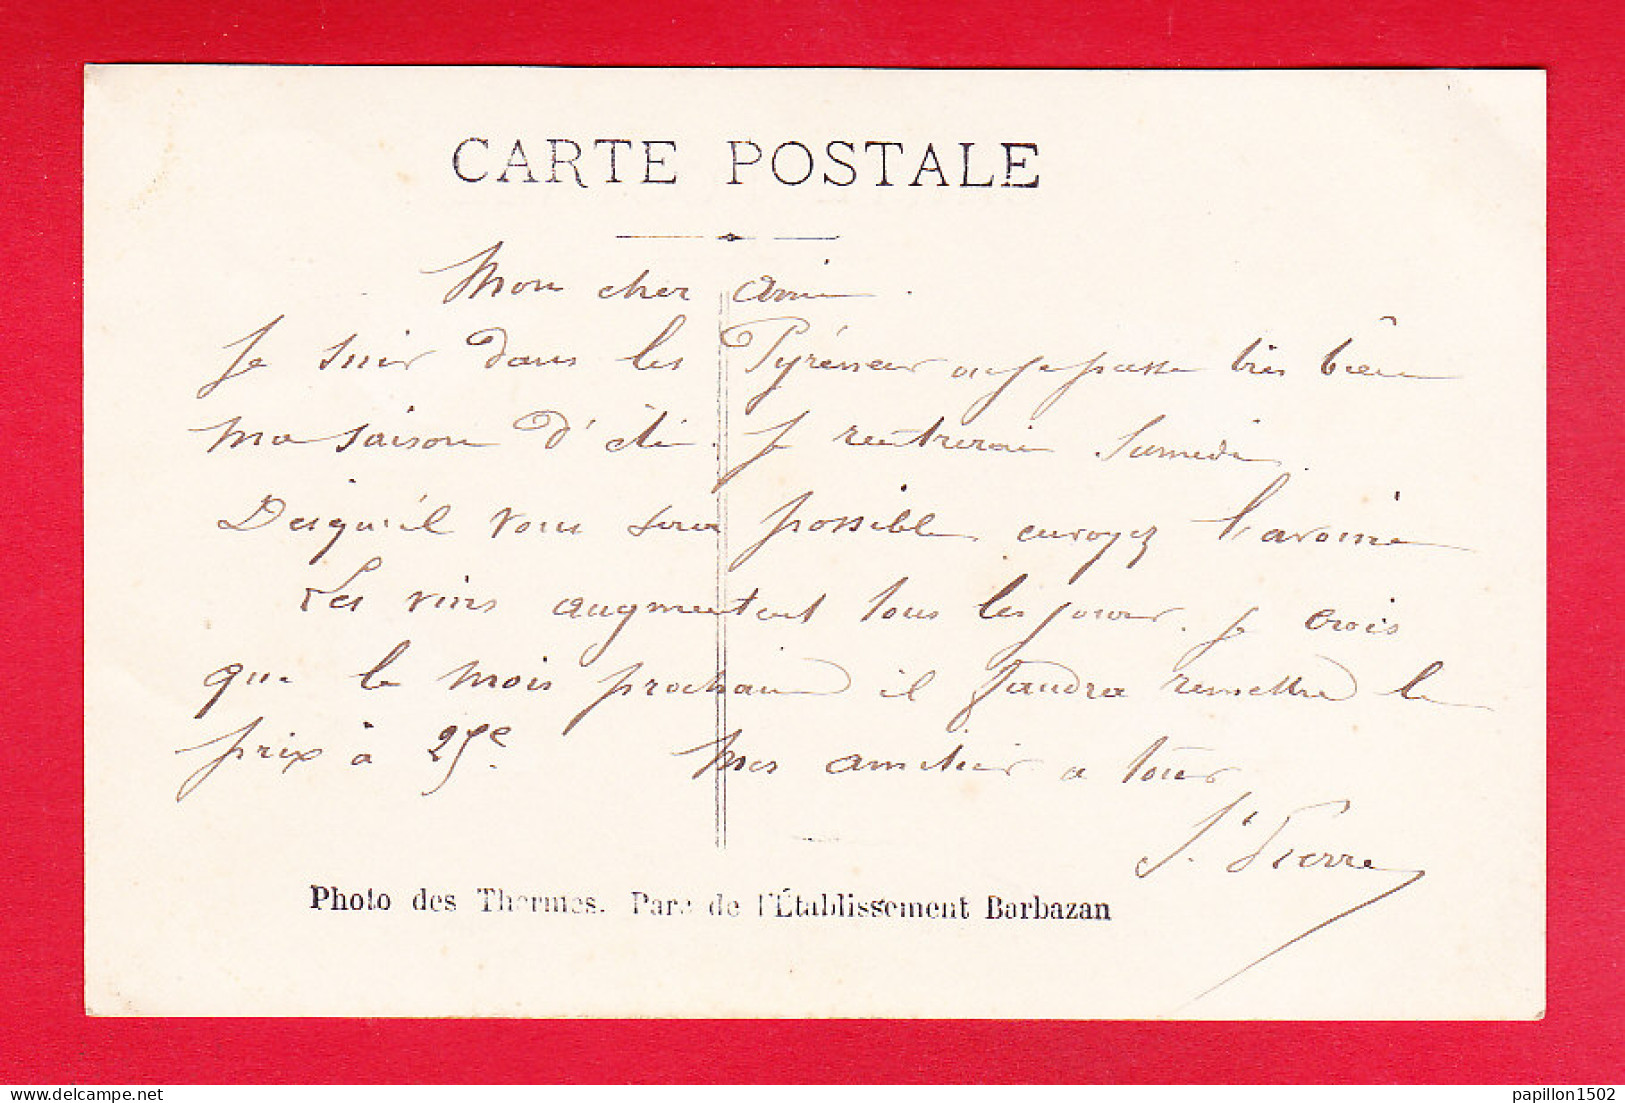 CARTE POSTALE
Mon cher ami.
Je suis dans les Pyrénées ou je passe très bien
ma saison d'été. Je rentrerai Samedi.
Dès qu'il vous sera possible envoyez l'avoine
Les vins augmentent tous les jours. Je crois
que le mois prochain il faudra remettre le
prix à 25 c.
Mes amitiés a tous
St Pierre
Photo des Thermes. Parc de l'Établissement Barbazan
delcampe.net
papillon1502